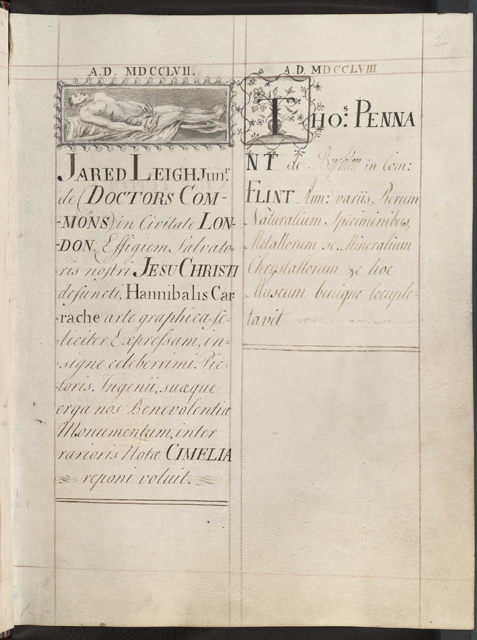 24
A.D. MDCCLVII.
JARED LEIGH, Junr.
de (DOCTORS COM-
-MONS) in Civitate LON-
DON, Effigiem Salvato-
ris nostri JESU CHRISTI
defuncti, Hannibalis Car-
rache arte graphica fe-
liciter Expressam, in-
signe celeberrimi Pic-
toris Ingenii, suæque
erga nos Benevolentiæ
Monumentum, inter
rarioris Notæ CIMELIA
reponi voluit.
A.D. MDCCLVIII
THO:s PENNA
NT de in Com:
FLINT Arm: variis Rerum
Naturalium Speciminibus,
Metallorum sc. Mineralium
Chrystallorum &c hoc
Museum benigne locuple-
tavit